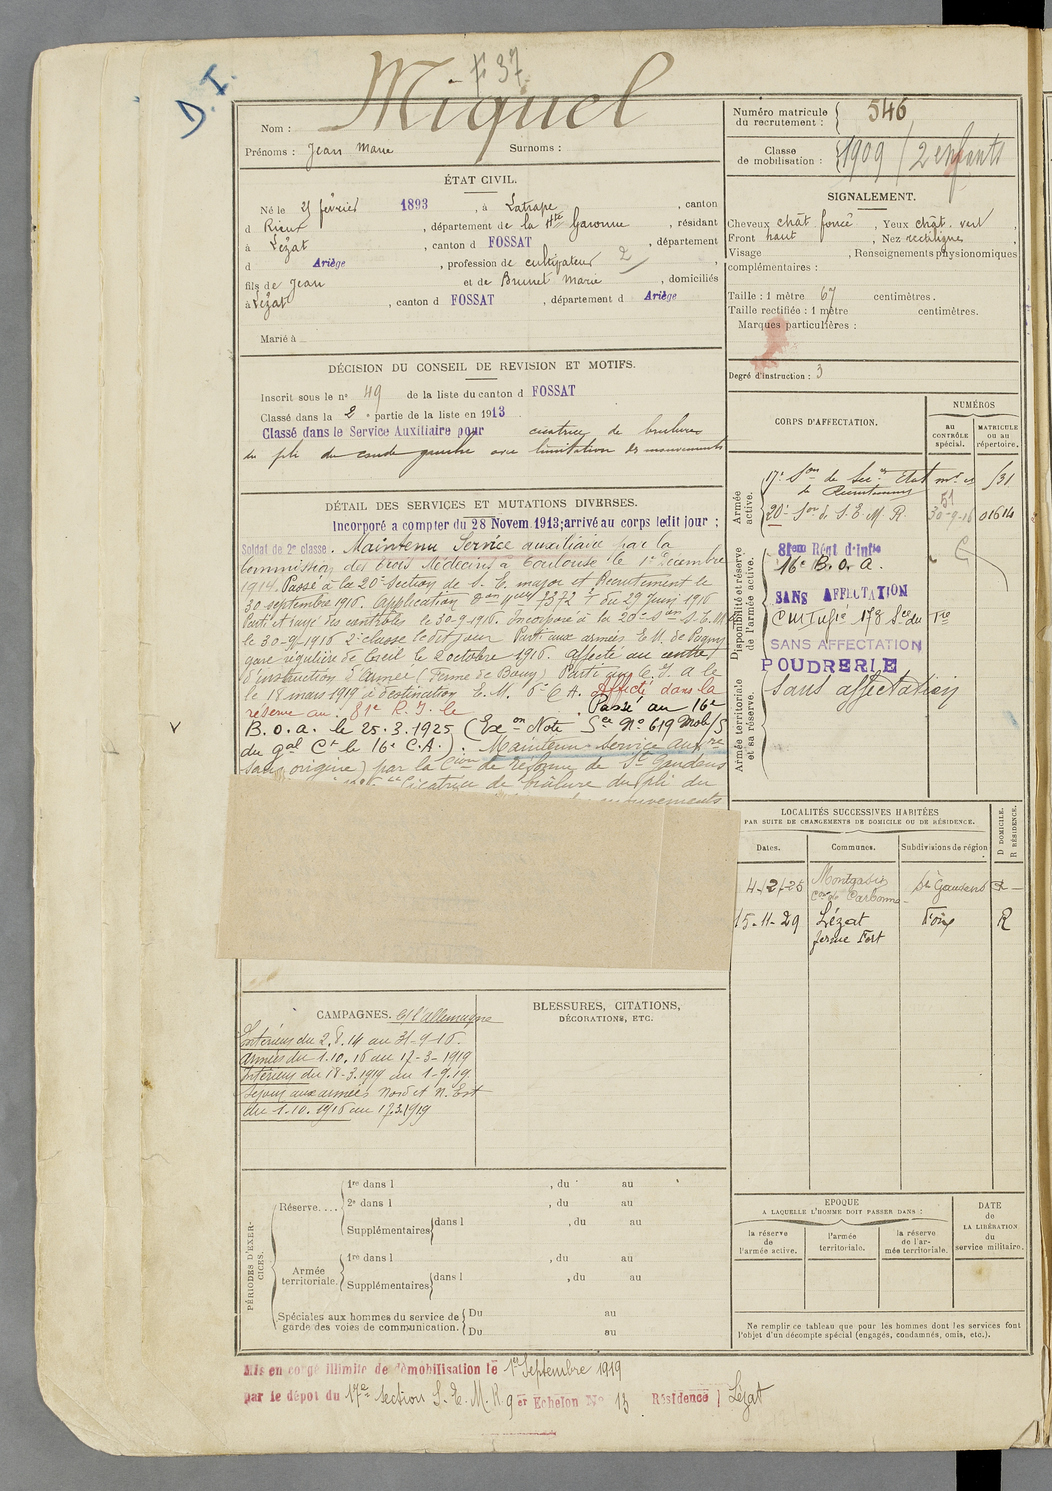 D. I.
F 37
Nom : Miquel
Prénoms : Jean Marie Surnoms :
ÉTAT CIVIL.
Né le 25 février 1893, à Latrape, canton
d Rieux, département de la Hte Garonne, résidant
à Lézat, canton d FOSSAT, département
d Ariège, profession de cultivateur 2
fils de Jean et de Brunet Marie, domiciliés
à Lézat, canton d FOSSAT, département d Ariège
Marié à
DÉCISION DU CONSEIL DE REVISION ET MOTIFS.
Inscrit sous le n° 49 de la liste du canton d FOSSAT
Classé dans la 2e partie de la liste en 1913
Classé dans le Service Auxiliaire pour cicatrice de brûlures
du pli du coude gauche avec limitation des mouvements
DÉTAIL DES SERVICES ET MUTATIONS DIVERSES.
Incorporé a compter du 28 Novem. 1913; arrivé au corps ledit jour ;
Soldat de 2e classe. Maintenu Service auxiliaire par la
Commission des trois Médecins à Toulouse le 1er Décembre
1914. Passé à la 20e Section de S. E. major et Recrutement le
30 septembre 1916. Application Don 7372 du 29 Juin 1916
Parti et rayé des contrôles le 30-9-1916. Incorporé à la 20e Son S.E.M.
le 30-9-1916 2e classe ledit jour Parti aux armées E.M. de
gare régulière de Creil le 2 octobre 1916. Affecté au centre
d'instruction d'Armée Parti au C.I. a le
le 18 mars 1919 à destination E.M. 6e C.A. Affecté dans la
réserve au 81e R.I. le Passé au 16e
B.O.A. le 25.3.1925 (Exon Note Sce N° 619 Mob/S
du gal Ct le 16e C.A.). Maintenu Service auxre
sans origine) par la Cion de réforme de St Gaudens
Cicatrice de brûlure du pli du
mouvements
CAMPAGNES. C/l'Allemagne
Intérieur du 2.8.14 au 31-9-16.
Armées du 1.10.16 au 17-3-1919
Intérieur du 18-3.1919 au 1-9.19
Séjour aux armées Nord et N. Est
du 1.10.1916 au 17.3.1919
BLESSURES, CITATIONS,
DÉCORATIONS, ETC.
PÉRIODES D'EXERCICES.
Réserve....
1re dans l , du au
2e dans l , du au
Supplémentaires dans l , du au
Armée territoriale.
1re dans l , du au
Supplémentaires dans l , du au
Spéciales aux hommes du service de garde des voies de communication.
Du au
Du au
Mis en congé illimité de démobilisation le 1er Septembre 1919
par le dépôt du 17e section S.E.M.R 9 er Echelon N° 13 Résidence Lézat
Numéro matricule
du recrutement : 546
Classe
de mobilisation : 1909 / 2 enfants
SIGNALEMENT.
Cheveux chât foncé, Yeux chât. vert,
Front haut, Nez rectiligne,
Visage , Renseignements physionomiques
complémentaires :
Taille : 1 mètre 67 centimètres.
Taille rectifiée : 1 mètre centimètres.
Marques particulières :
Degré d'instruction : 3
CORPS D'AFFECTATION.
NUMÉROS
au CONTRÔLE spécial.
MATRICULE ou au répertoire.
Armée active.
17e Son de Secres Etat mor et
de Recrutement 51
20e Son de S.E.M.R. 30-9-16 01614
Disponibilité et réserve de l'armée active.
81eme Régt d'Infie
16e B.O.A.
SANS AFFECTATION
SANS AFFECTATION
POUDRERIE
Armée territoriale et sa réserve.
Sans affectation
LOCALITÉS SUCCESSIVES HABITÉES
PAR SUITE DE CHANGEMENTS DE DOMICILE OU DE RÉSIDENCE.
Dates. Communes. Subdivisions de région D DOMICILE. R RÉSIDENCE.
4-2-25 Montgazin St Gaudens R
Con de Carbonne
15-11-29 Lézat Foix R
ferme Fort
EPOQUE
A LAQUELLE L'HOMME DOIT PASSER DANS :
la réserve de l'armée active.
l'armée territoriale.
la réserve de l'armée territoriale.
DATE
de
LA LIBÉRATION
du
service militaire.
Ne remplir ce tableau que pour les hommes dont les services font
l'objet d'un décompte spécial (engagés, condamnés, omis, etc.).